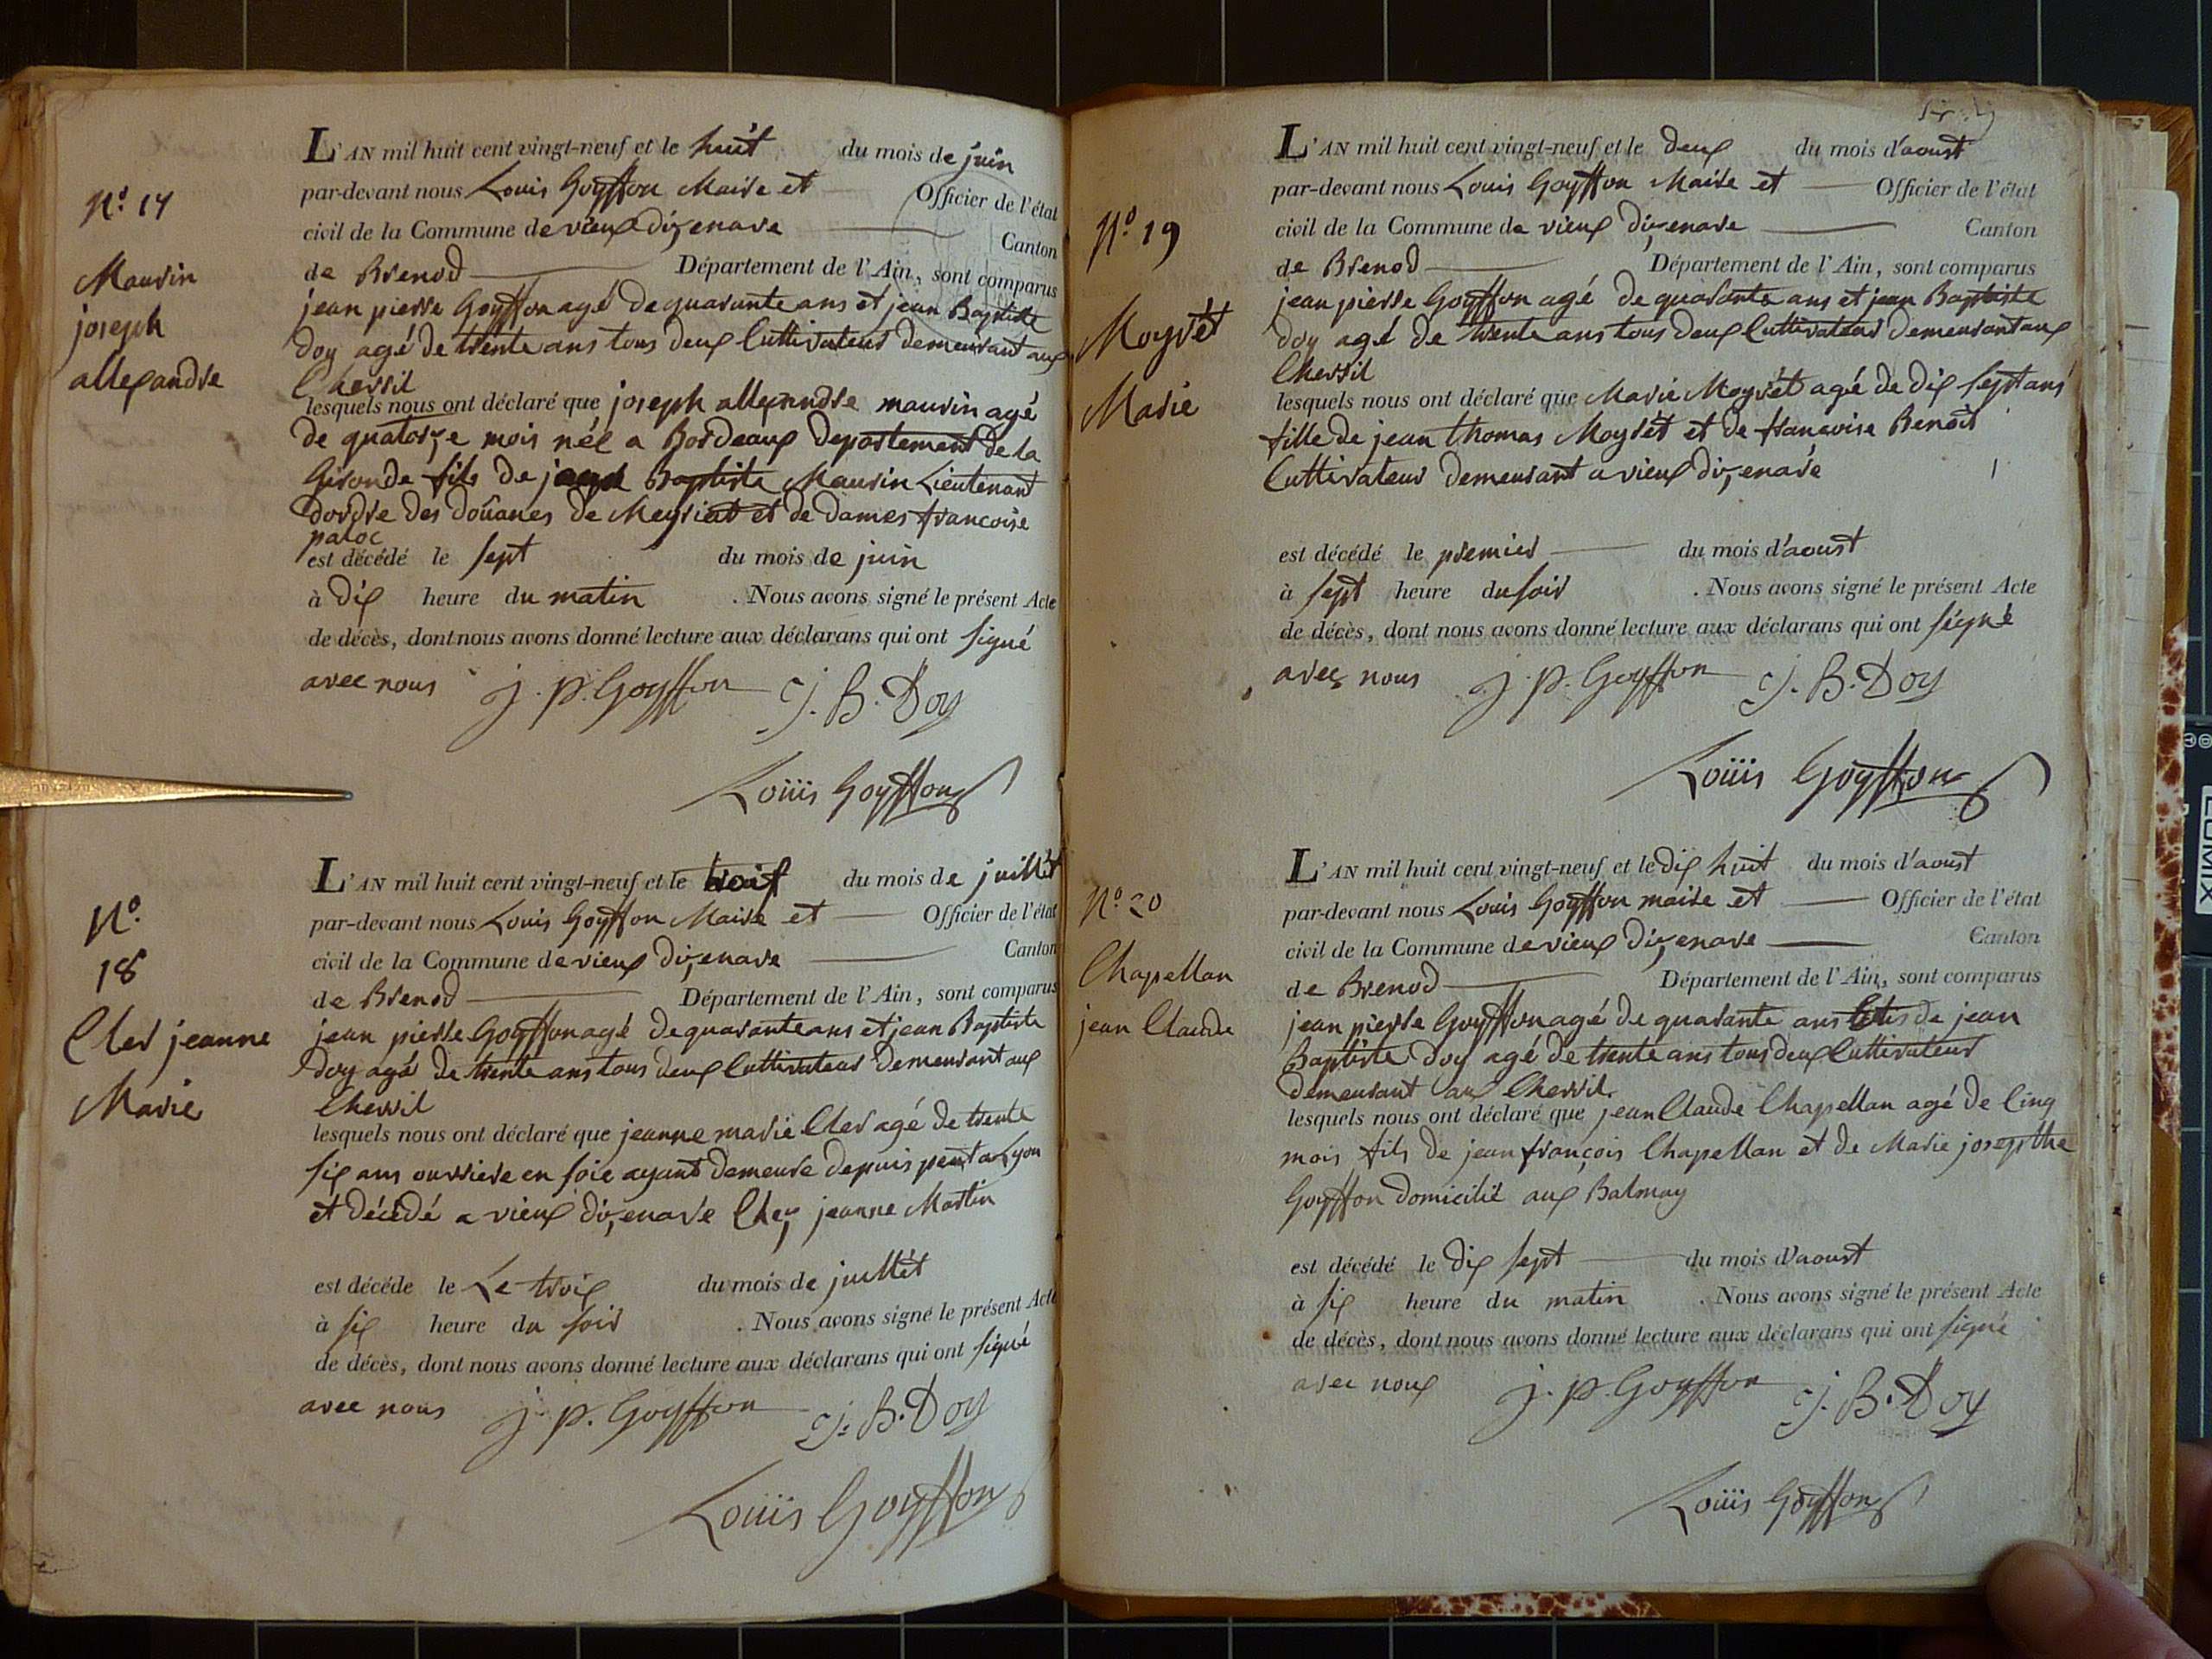 N.º 17
Maurin
joseph
allexandre
L'AN mil huit cent vingt-neuf et le huit du mois de juin
par-devant nous Louis Goyffon Maire et Officier de l'état
civil de la Commune de vieux dizenave Canton
de Brenod Département de l'Ain, sont comparus
jean pierre Goyffon agé de quarante ans et jean Baptiste
doy agé de trente ans tous deux Cultivateur demeurant aux
Chevril
lesquels nous ont déclaré que joseph allexandre maurin agé
de quatorze mois néé a Bordeaux departement de la
Gironde fils de jean Baptiste Maurin Lieutenant
dordre des doûanes de Meyriat et de dames francoise
paloc
est décédé le sept du mois de juin
à dix heure du matin . Nous avons signé le présent Acte
de décès, dont nous avons donné lecture aux déclarans qui ont signé
avec nous j. p. Goyffon j. B. Doy
Loüis Goyffon
Nº.
18
Cler jeanne
Marie
L'AN mil huit cent vingt-neuf et le trois du mois de juillet
par-devant nous Louis Goyffon Maire et Officier de l'état
civil de la Commune de vieux dizenave Canton
de Brenod Département de l'Ain, sont comparus
jean pierre Goyffon agé de quarante ans et jean Baptiste
doy agé de trente ans tous deux Cultivateur demeurant aux
Chevril
lesquels nous ont déclaré que jeanne marie Cler agé de trente
six ans ouvriere en soie ayant demeure depuis peut a Lyon
et décédé a vieux dizenave Chez jeanne Martin
est décédé le Le trois du mois de juillèt
à six heure du soir . Nous avons signé le présent Acte
de décès, dont nous avons donné lecture aux déclarans qui ont signé
avec nous j. p. Goyffon j. B. Doy
Loüis Goyffon
Nº. 19
Moyrèt
Marie
L'AN mil huit cent vingt-neuf et le deux du mois d'aoust
par-devant nous Louis Goyffon Maire et Officier de l'état
civil de la Commune de vieux dizenave Canton
de Brenod Département de l'Ain, sont comparus
jean pierre Goyffon agé de quarante ans et jean Baptiste
doy agé de trente ans tous deux Cultivateur demeurant aux
Chevril
lesquels nous ont déclaré que Marie Moyrèt agé de dix sept ans
fille de jean thomas Moyrèt et de francoise Benoît
Cultivateur demeurant a vieux dizenave
est décédé le premier du mois d'aoust
à sept heure du soir . Nous avons signé le présent Acte
de décès, dont nous avons donné lecture aux déclarans qui ont signé
avec nous j. p. Goyffon j. B. Doy
Loüis Goyffon
Nº. 20
Chapellan
jean Claude
L'AN mil huit cent vingt-neuf et le dix huit du mois d'aoust
par-devant nous Louis Goyffon maire et Officier de l'état
civil de la Commune de vieux dizenave Canton
de Brenod Département de l'Ain, sont comparus
jean pierre Goyffon agé de quarante ans de jean
Baptiste doy agé de trente ans tous deux Cultivateur
demeurant aux Chevril
lesquels nous ont déclaré que jean Claude Chapellan agé de Cinq
mois fils de jean françois Chapellan et de Marie josepthe
Goyffon domicilié aux Balmay
est décédé le dix sept du mois d'aoust
à six heure du matin . Nous avons signé le présent Acte
de décès, dont nous avons donné lecture aux déclarans qui ont signé
avec nous j. p. Goyffon j. B. Doy
Loüis Goyffon
LUMIX